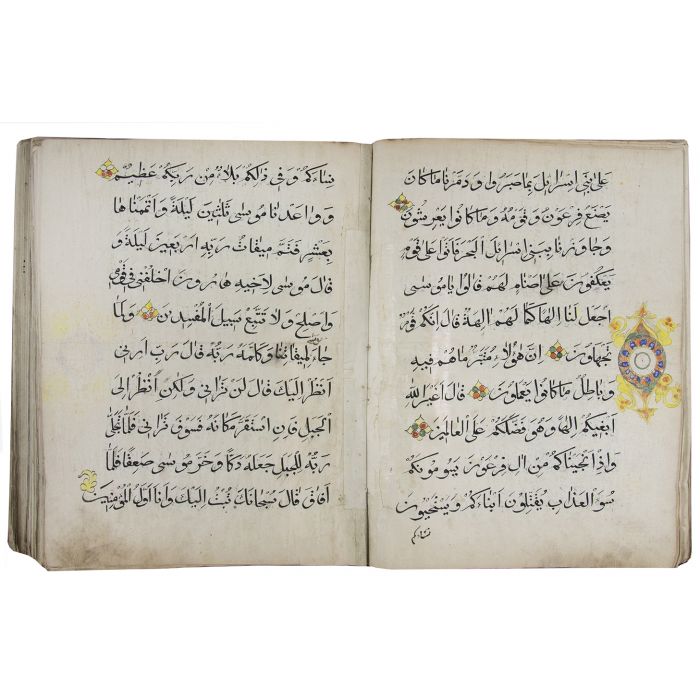 عَلٰى بَنِي اِسْرَائلَ بِمَا صَبَرُوا وَدَمَّرْنَا مَا كَانَ
يَصْنَعُ فِرْعَوْنُ وَقَوْمُهُ وَمَا كَانُوا يَعْرِشُونَ
وَجَاوَزْنَا بِبَنِي اِسْرَائلَ الْبَحْرَ فَاَتَوْا عَلٰى قَوْمٍ
يَعْكُفُونَ عَلٰى اَصْنَامٍ لَهُمْ قَالُوا يَامُوسٰى
اجْعَلْ لَنَا اِلٰهًا كَمَا لَهُمْ اٰلِهَةٌ قَالَ اِنَّكُمْ قَوْمٌ
تَجْهَلُونَ اِنَّ هٰؤُلَاءِ مُتَبَّرٌ مَا هُمْ فِيهِ
وَبَاطِلٌ مَا كَانُوا يَعْمَلُونَ قَالَ اَغَيْرَ اللّٰهِ
اَبْغِيكُمْ اِلٰهًا وَهُوَ فَضَّلَكُمْ عَلَى الْعَالَمِينَ
وَاِذْ اَنْجَيْنَاكُمْ مِنْ اٰلِ فِرْعَوْنَ يَسُومُونَكُمْ
سُوءَ الْعَذَابِ يُقَتِّلُونَ اَبْنَاءَكُمْ وَيَسْتَحْيُونَ
نساءكم
نِسَاءَكُمْ وَفِي ذٰلِكُمْ بَلَاءٌ مِنْ رَبِّكُمْ عَظِيمٌ
وَوَاعَدْنَا مُوسٰى ثَلٰثِينَ لَيْلَةً وَاَتْمَمْنَاهَا
بِعَشْرٍ فَتَمَّ مِيقَاتُ رَبِّهِ اَرْبَعِينَ لَيْلَةً وَ
قَالَ مُوسٰى لِاَخِيهِ هَارُونَ اخْلُفْنِي فِي قَوْمِي
وَاَصْلِحْ وَلَا تَتَّبِعْ سَبِيلَ الْمُفْسِدِينَ وَلَمَّا
جَاءَ لِمِيقَاتِنَا وَكَلَّمَهُ رَبُّهُ قَالَ رَبِّ اَرِنِي
اَنْظُرْ اِلَيْكَ قَالَ لَنْ تَرَانِي وَلٰكِنِ انْظُرْ اِلَى
الْجَبَلِ فَاِنِ اسْتَقَرَّ مَكَانَهُ فَسَوْفَ تَرَانِي فَلَمَّا تَجَلّٰى
رَبُّهُ لِلْجَبَلِ جَعَلَهُ دَكًّا وَخَرَّ مُوسٰى صَعِقًا فَلَمَّا
اَفَاقَ قَالَ سُبْحَانَكَ تُبْتُ اِلَيْكَ وَاَنَا اَوَّلُ الْمُؤْمِنِينَ